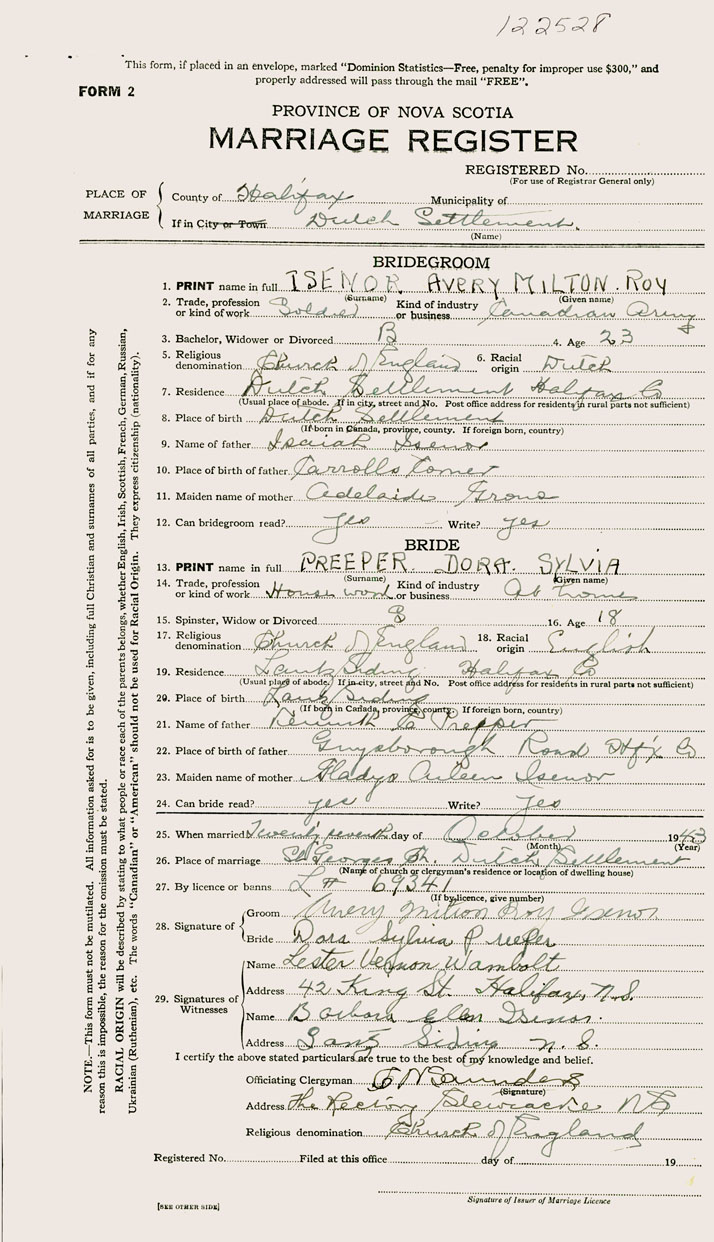 122528
This form, if placed in an envelope, marked “Dominion Statistics—Free, penalty for improper use $300,” and
properly addressed will pass through the mail “FREE”.
FORM 2
PROVINCE OF NOVA SCOTIA
MARRIAGE REGISTER
REGISTERED No.
(For use of Registrar General only)
PLACE OF MARRIAGE
County of Halifax Municipality of
If in City or Town Dutch Settlement.
(Name)
NOTE.—This form must not be mutilated. All information asked for is to be given, including full Christian and surnames of all parties, and if for any
reason this is impossible, the reason for the omission must be stated.
RACIAL ORIGIN will be described by stating to what people or race each of the parents belongs, whether English, Irish, Scottish, French, German, Russian,
Ukrainian (Ruthenian), etc. The words “Canadian” or “American” should not be used for Racial Origin. They express citizenship (nationality).
BRIDEGROOM
1. PRINT name in full ISENOR AVERY MILTON. ROY
(Surname) (Given name)
2. Trade, profession or kind of work Soldier Kind of industry or business Canadian Army
3. Bachelor, Widower or Divorced B 4. Age 23
5. Religious denomination Church of England 6. Racial origin Dutch
7. Residence Dutch Settlement Halifax Co
(Usual place of abode. If in city, street and No. Post office address for residents in rural parts not sufficient)
8. Place of birth Dutch Settlement
(If born in Canada, province, county. If foreign born, country)
9. Name of father Isaiah Isenor
10. Place of birth of father Carrolls Corner
11. Maiden name of mother Adelaide Grono
12. Can bridegroom read? yes Write? yes
BRIDE
13. PRINT name in full PREEPER DORA. SYLVIA
(Surname) (Given name)
14. Trade, profession or kind of work House work Kind of industry or business At home
15. Spinster, Widow or Divorced S 16. Age 18
17. Religious denomination Church of England 18. Racial origin English
19. Residence Lantz Siding Halifax Co
(Usual place of abode. If in city, street and No. Post office address for residents in rural parts not sufficient)
20. Place of birth Lantz Siding
(If born in Canada, province, county. If foreign born, country)
21. Name of father Preeper
22. Place of birth of father Guysborough Road Hfx Co
23. Maiden name of mother Gladys Aileen Isenor
24. Can bride read? yes Write? yes
25. When married Twenty seventh day of October 1943
(Month) (Year)
26. Place of marriage St Georges Ch. Dutch Settlement
(Name of church or clergyman's residence or location of dwelling house)
27. By licence or banns L # 69341
(If by licence, give number)
28. Signature of
Groom Avery Milton Roy Isenor
Bride Dora Sylvia Preeper
29. Signatures of Witnesses
Name Lester Vernon Wambolt
Address 42 King St. Halifax, N.S.
Name Barbara Ellen Isenor
Address Lantz Siding N.S.
I certify the above stated particulars are true to the best of my knowledge and belief.
Officiating Clergyman Saunders
(Signature)
Address The Rectory Stewiacke NS
Religious denomination Church of England
Registered No. Filed at this office day of 19
Signature of Issuer of Marriage Licence
[SEE OTHER SIDE]